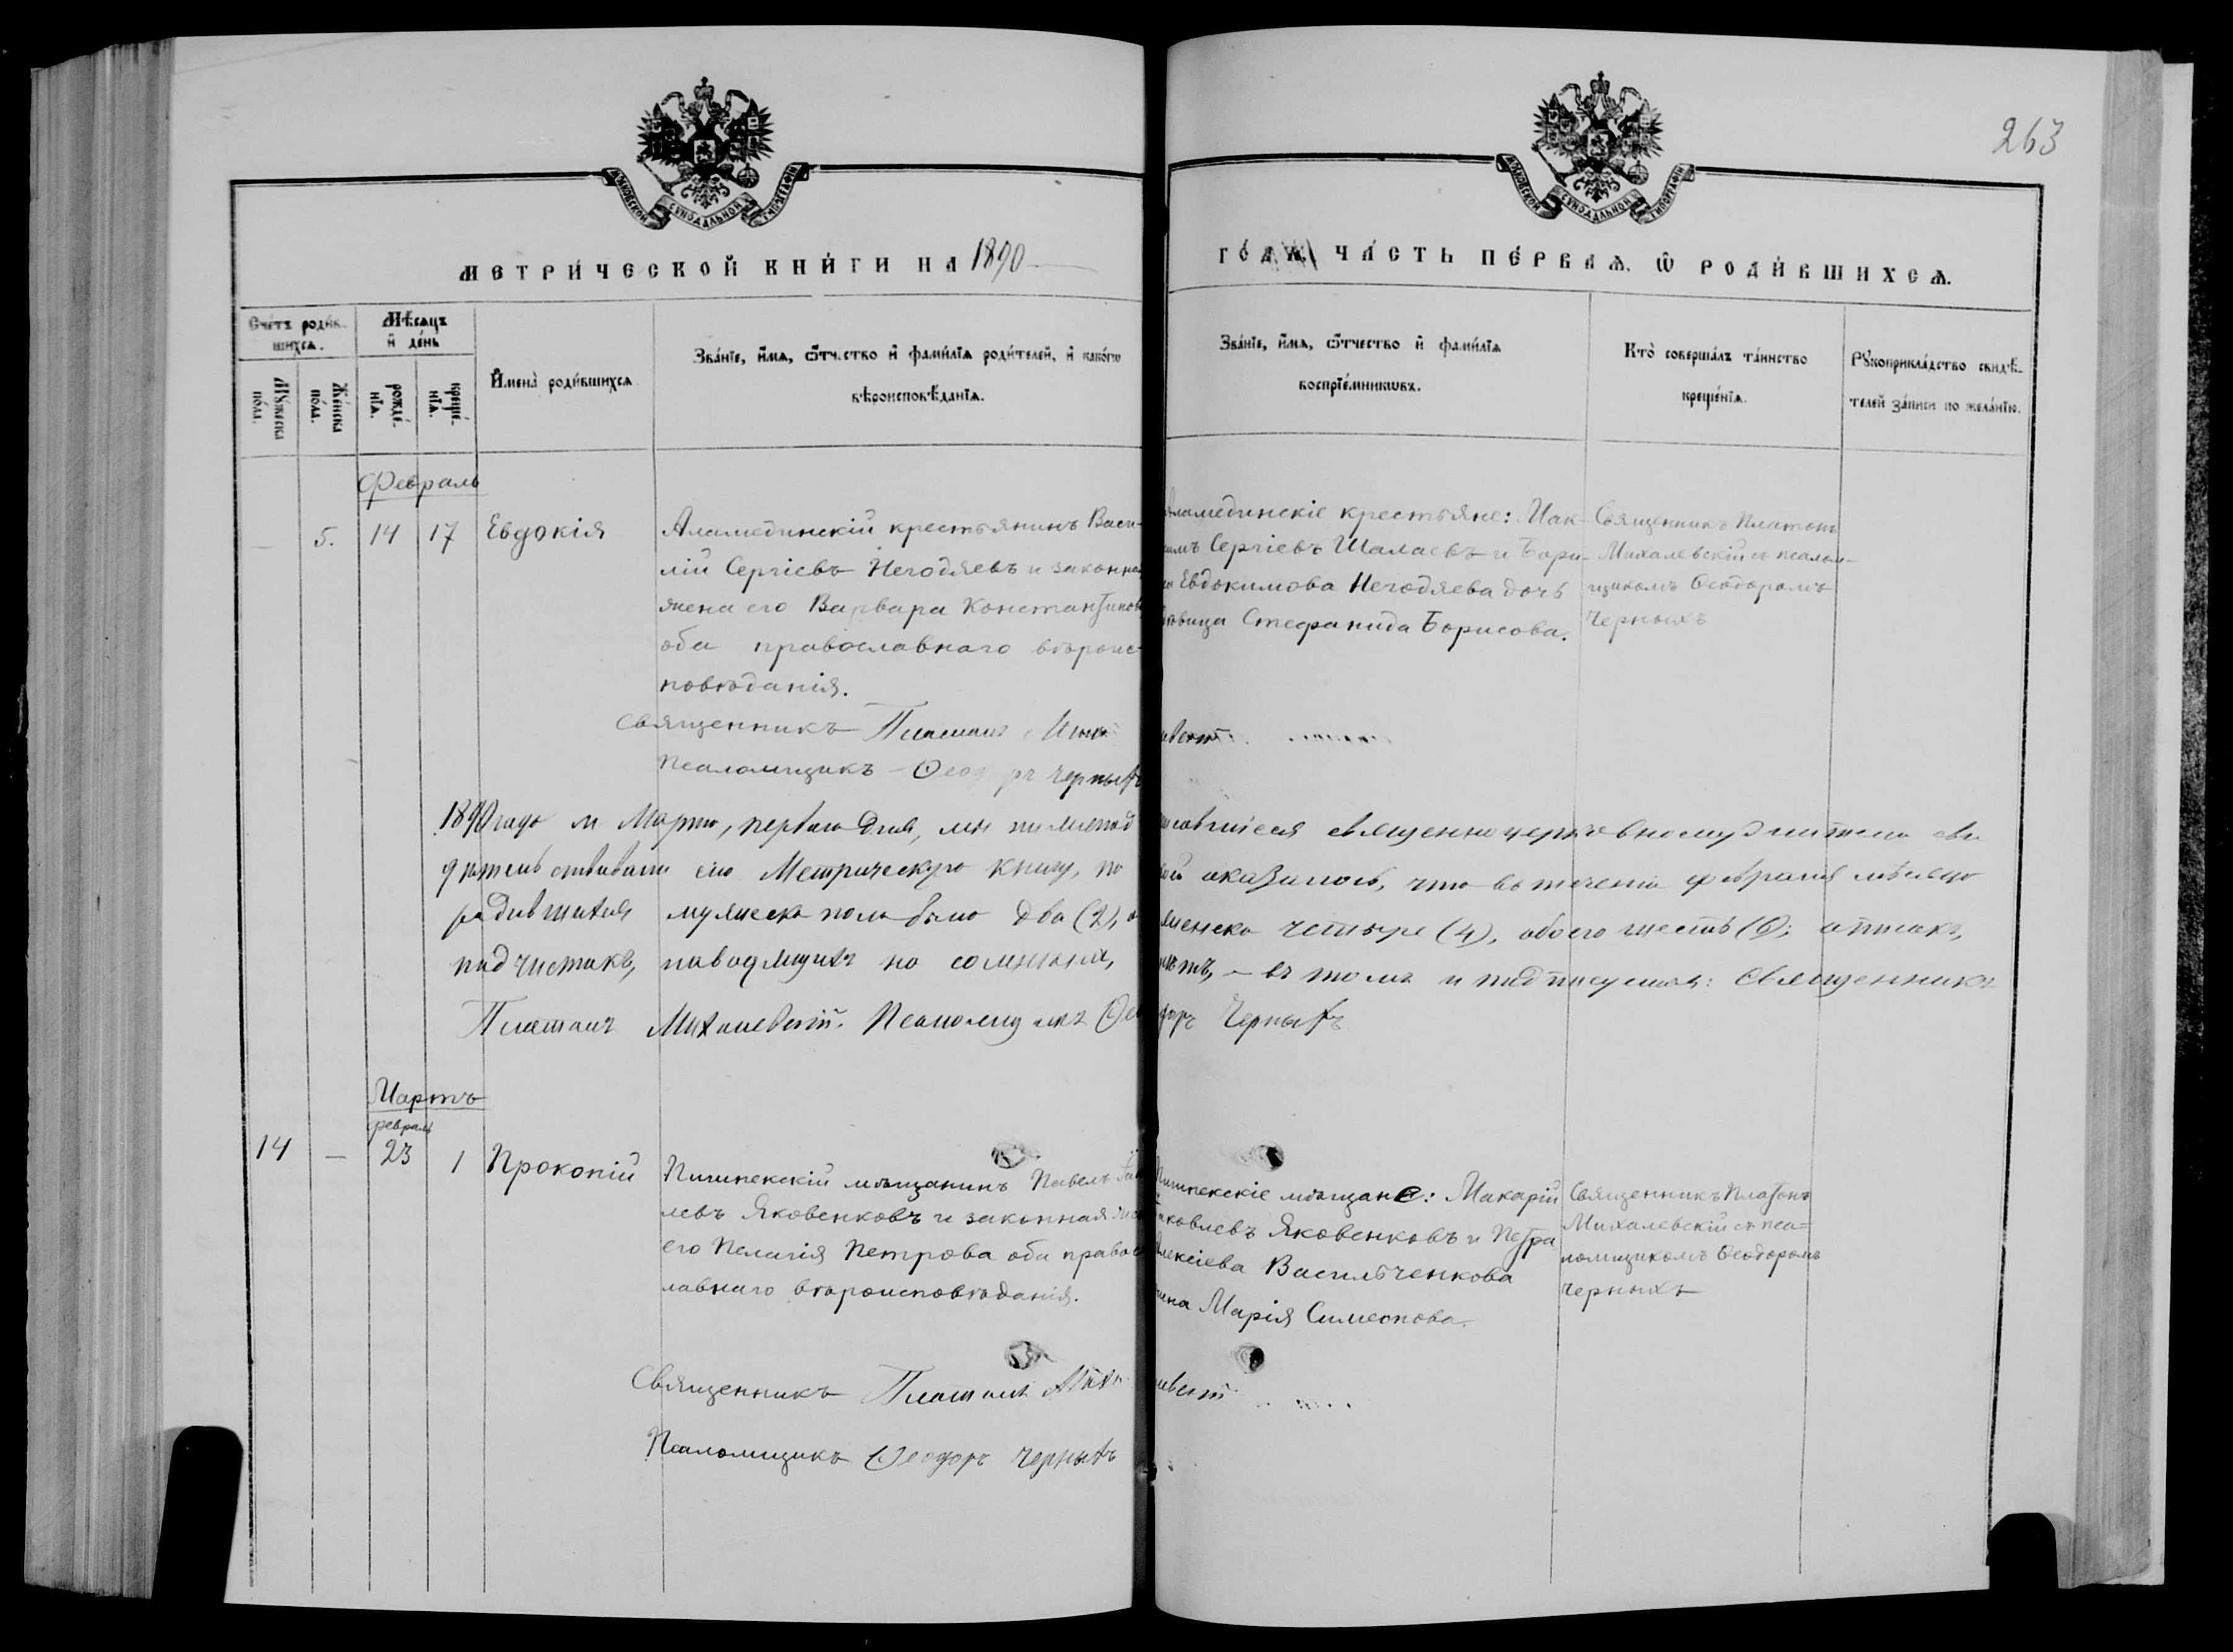 263
МОСКОВСКОЙ СѴНОДАЛЬНОЙ ТИПОГРАФІИ
МОСКОВСКОЙ СѴНОДАЛЬНОЙ ТИПОГРАФІИ
МЕТРИ́ЧЕСКОЙ КНИ́ГИ НА 1890
ГО́ДЪ, ЧА́СТЬ ПЕ́РВАѦ, Ѡ҆ РОДИ́ВШИХСѦ.
Сче́тъ роди́в-
шихсѧ.
Мꙋ́жеска по́ла.
Же́нска по́ла.
Мѣ́сѧцъ и҆ де́нь
рожде́-
нїѧ.
креще́-
нїѧ.
И҆мена̀ роди́вшихсѧ
Зва́нїе, и҆́мѧ, ѻ҆́тчество и҆ фами́лїѧ роди́телей, и҆ како́гѡ
вѣроисповѣ́данїѧ.
Зва́нїе, и҆́мѧ, ѻ҆́тчество и҆ фами́лїѧ
воспрїе́мникѡвъ.
Кто̀ соверша́лъ та́инство
креще́нїѧ.
Рꙋкоприкла́дство свидѣ́-
телей за́писи по жела́нїю.
Февраль
— 5. 14 17 Евдокія
Аламединскій крестьянинъ Васи-
лій Сергіевъ Негодяевъ и законная
жена его Варвара Константинова
оба православнаго вѣроис-
повѣданія.
Аламединскіе крестьяне:
Сергіевъ Шалаевъ и Бори-
Евдокимова Негодяева дочь
Стефанида Борисова.
Священникъ Платонъ
Михалевскій съ псалом-
щикомъ Ѳеодоромъ
Черныхъ
Священникъ Платонъ
Псаломщикъ – Ѳеодоръ Черныхъ
1890 года м. Марта, перваго дня, мы
священноцерковнослужители сви
дѣтельствовали сію Метрическую книгу, по
оказалось, что въ теченіи февраля мѣсяца
родившихся мужеска пола было два (2), а
женска четыре (4), обоего шесть (6);
подчистокъ, наводящихъ на сомнѣнія,
нѣтъ, – въ томъ и подписуемся: Священникъ
Платонъ Михалевскій. Псаломщикъ Ѳео
доръ Черныхъ
Мартъ
февраль
14 — 23 1 Прокопій
Пишпекскій мѣщанинъ Павелъ
левъ Яковенковъ и законная
его Пелагія Петрова оба правос
лавнаго вѣроисповѣданія.
Пишпекскіе мѣщане: Макарій
Яковлевъ Яковенковъ и Петра
Алексіева Васильченкова
жена Марія Симеонова.
Священникъ Платонъ
Михалевскій съ пса=
ломщикомъ Ѳеодоромъ
Черныхъ
Священникъ Платонъ
Псаломщикъ Ѳеодоръ Черныхъ